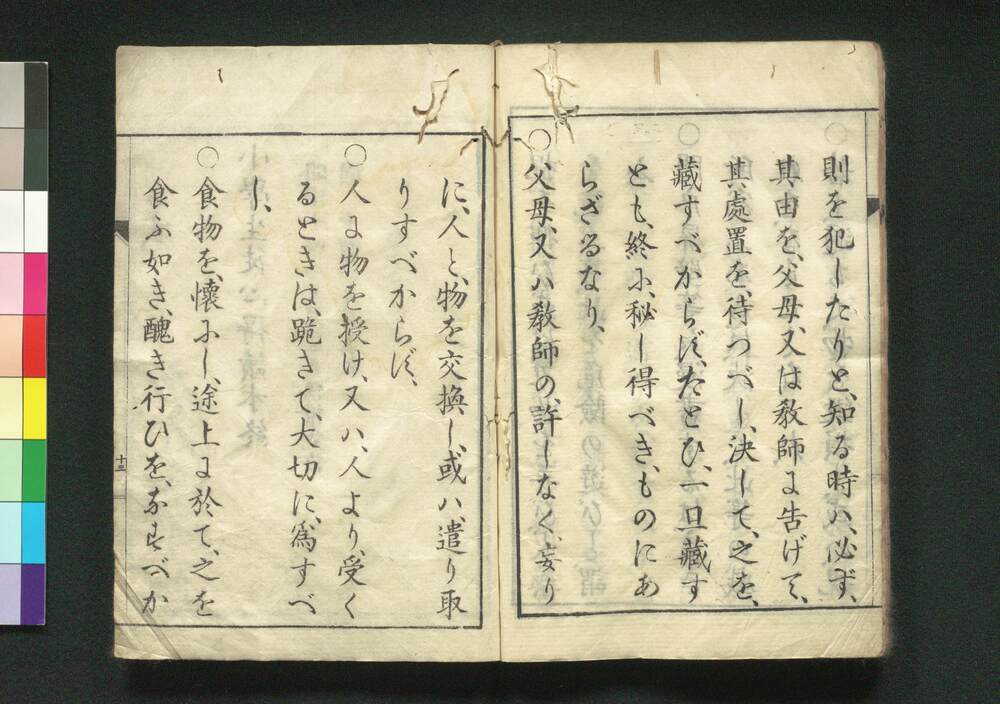 則を犯したりと、知る時ハ、必ず、
其由を、父母、又は教師に告げて、
其處置を、待つべし、決して、之を、
藏すべからず、たとひ、一旦藏す
とも、終に、秘し得べき、ものにあ
らざるなり、
〇父母、又ハ教師の、許しなく、妄り
に、人と、物を交換し、或ハ、遣り取
りすべからず、
〇人に物を授け、又ハ、人より、受く
るときは、跪きて、大切に、爲すべ
し、
〇食物を、懷にし、途上に於て、之を
食ふ如き、醜き行ひを、なすべか
十三